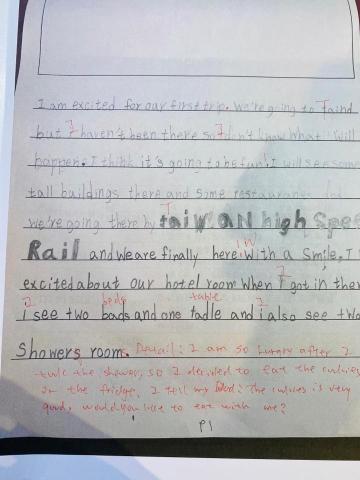 I am excited for our first trip. We're going to Taind
but I haven't been there so I don't know what will
happen. I think it's going to be fun. I will see some
tall buildings there and some restaurants
we're going there by taiwan high Spee
Rail and we are finally here. With a smile, I
excited about our hotel room when I got in ther
I see two bads and one tadle and i also see two
beds table
Showers room. Detail: I am so hungry after I
take the shower, so I decided to eat the cookies
in the fridge. I tell my Dad: The cookies is very
good, would you like to eat with me?
P1